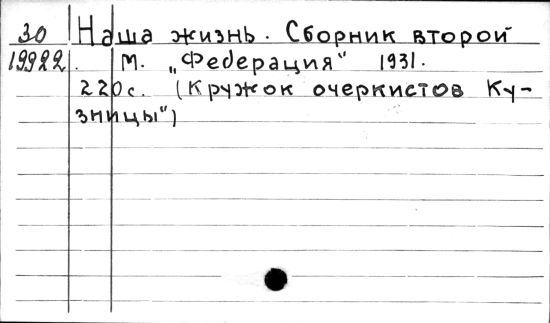 30 Наша жизнь. Сборник второй
19922. М. „Федерация“ 1931.
220с. (Кружок очеркистов Ку-
зницы“)